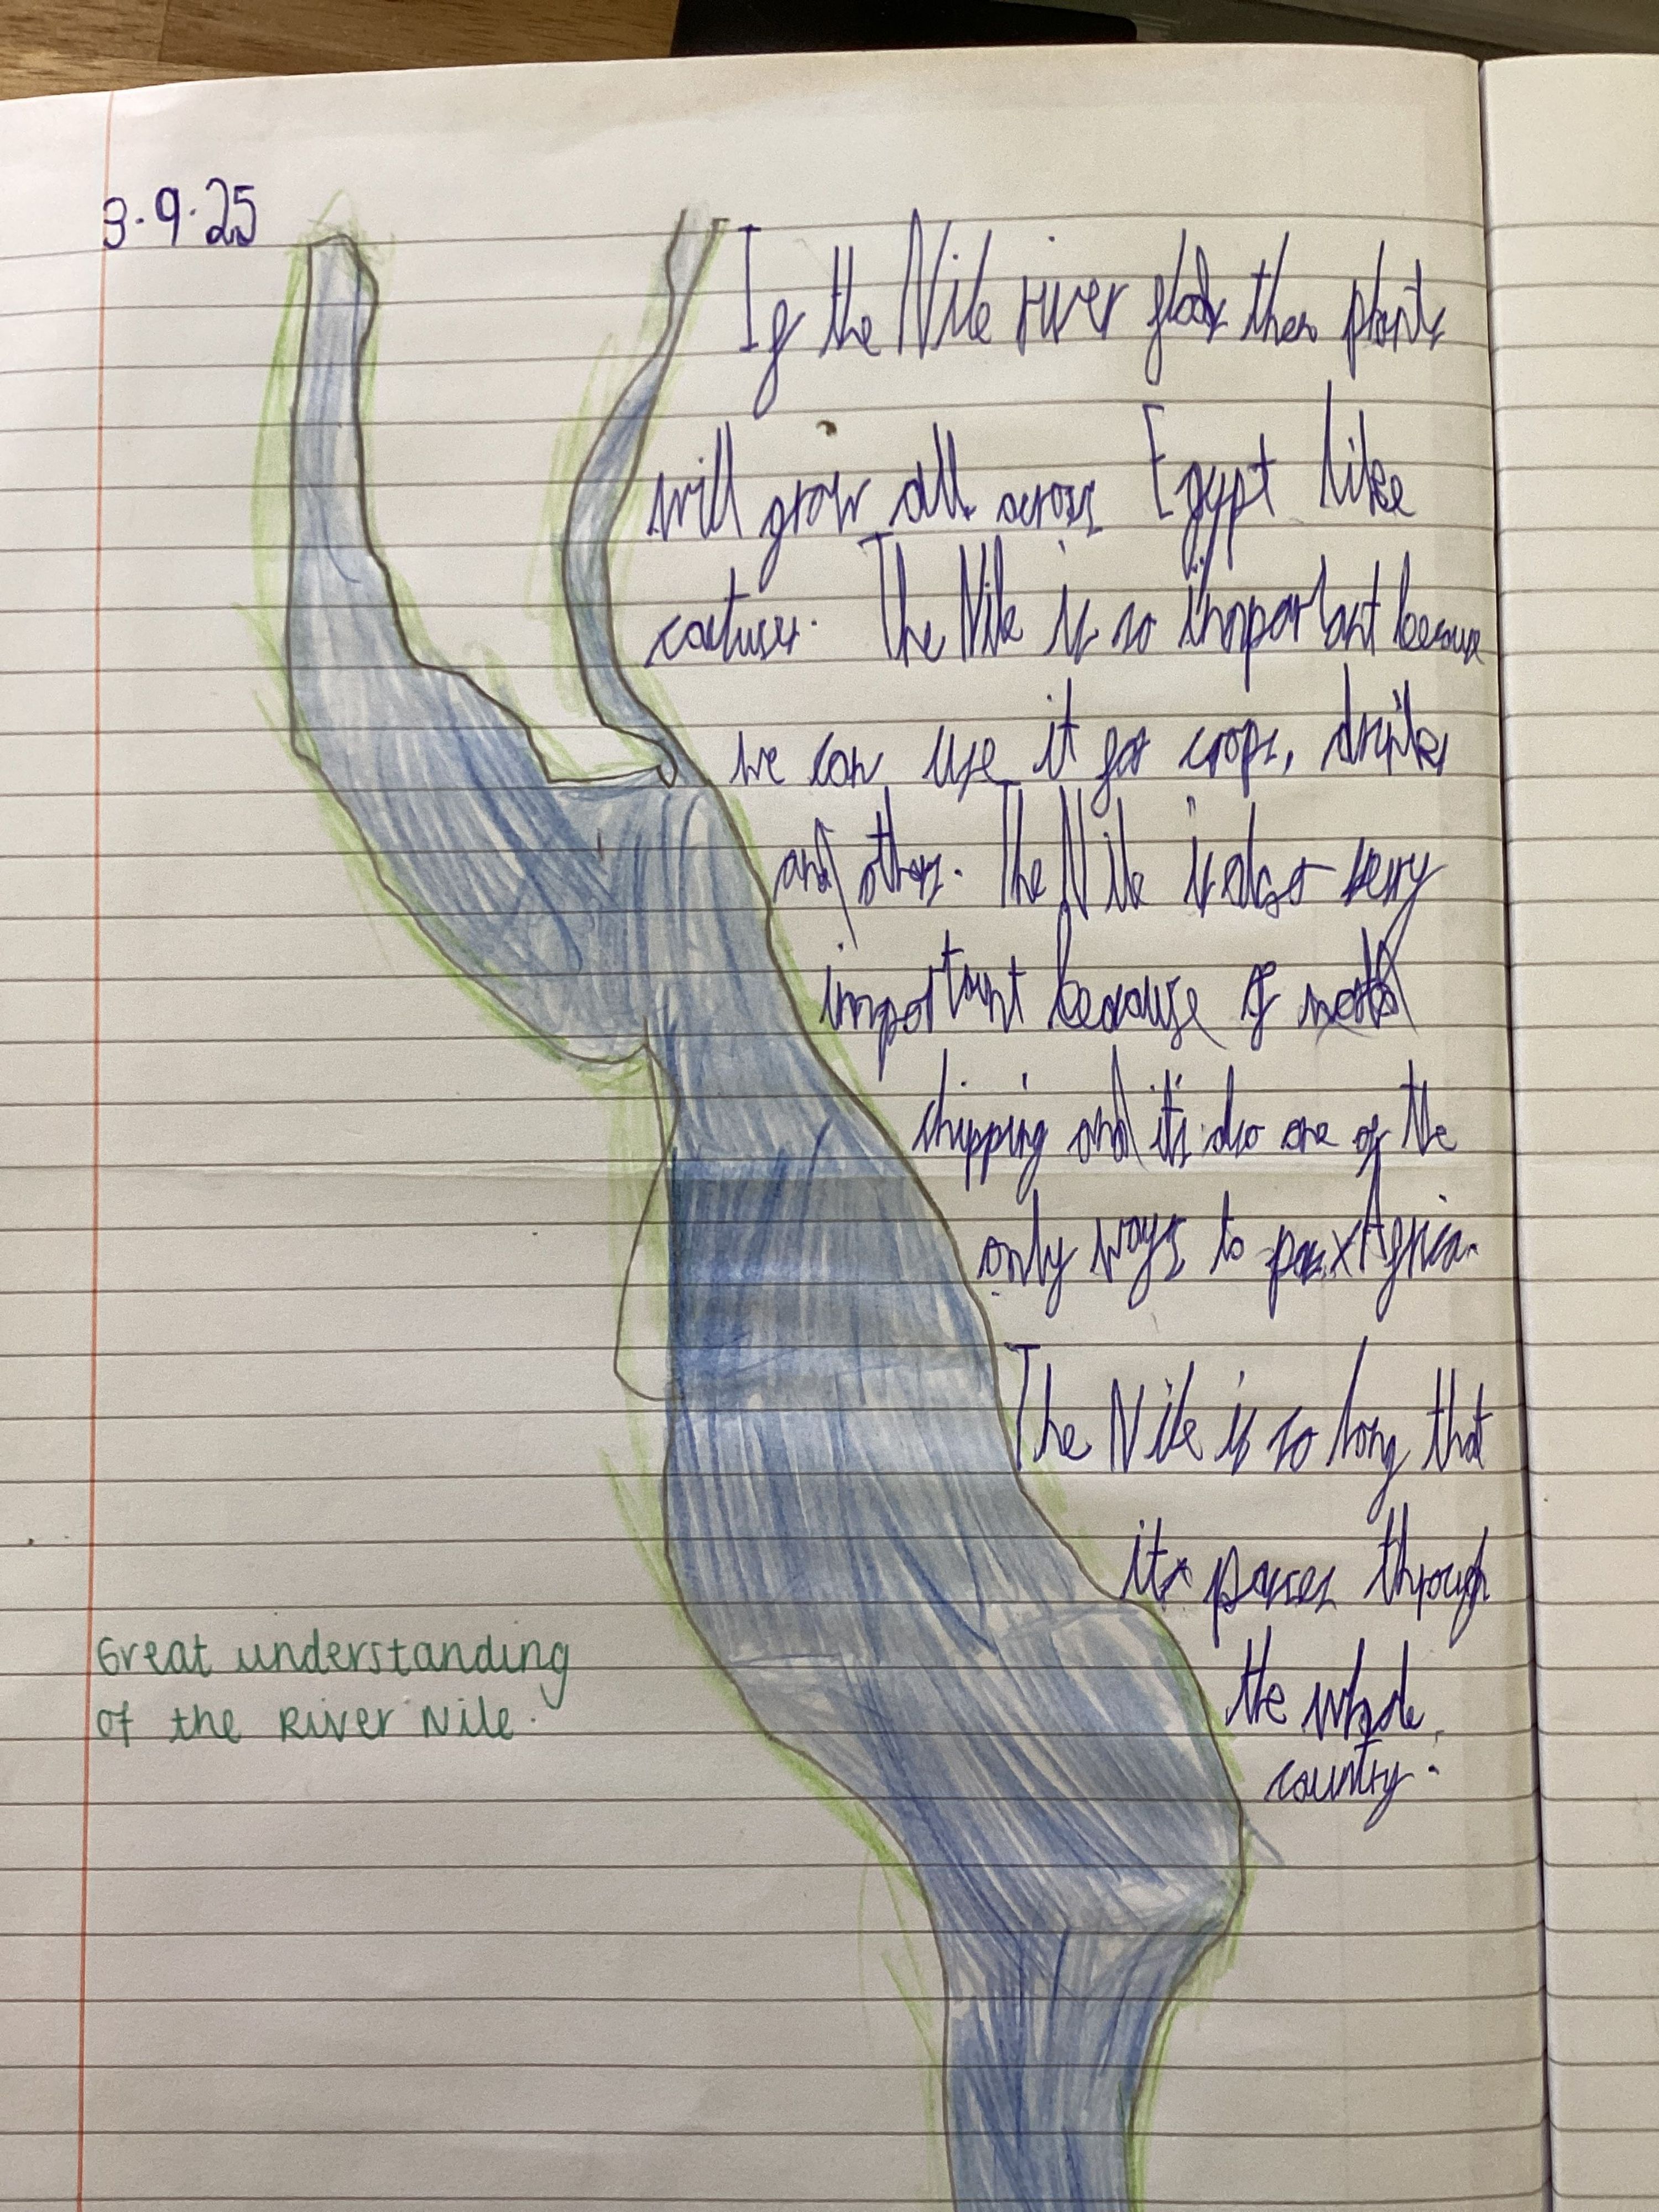 3.9.25
If the Nile river floods then plants
will grow all across Egypt like
The Nile is so important because
we can use it for crops, drinks
and others. The Nile is also very
important because of
shipping and it's also one of the
only ways to pass Africa.
The Nile is so long that
it passes through
the whole
country.
Great understanding
of the River Nile.